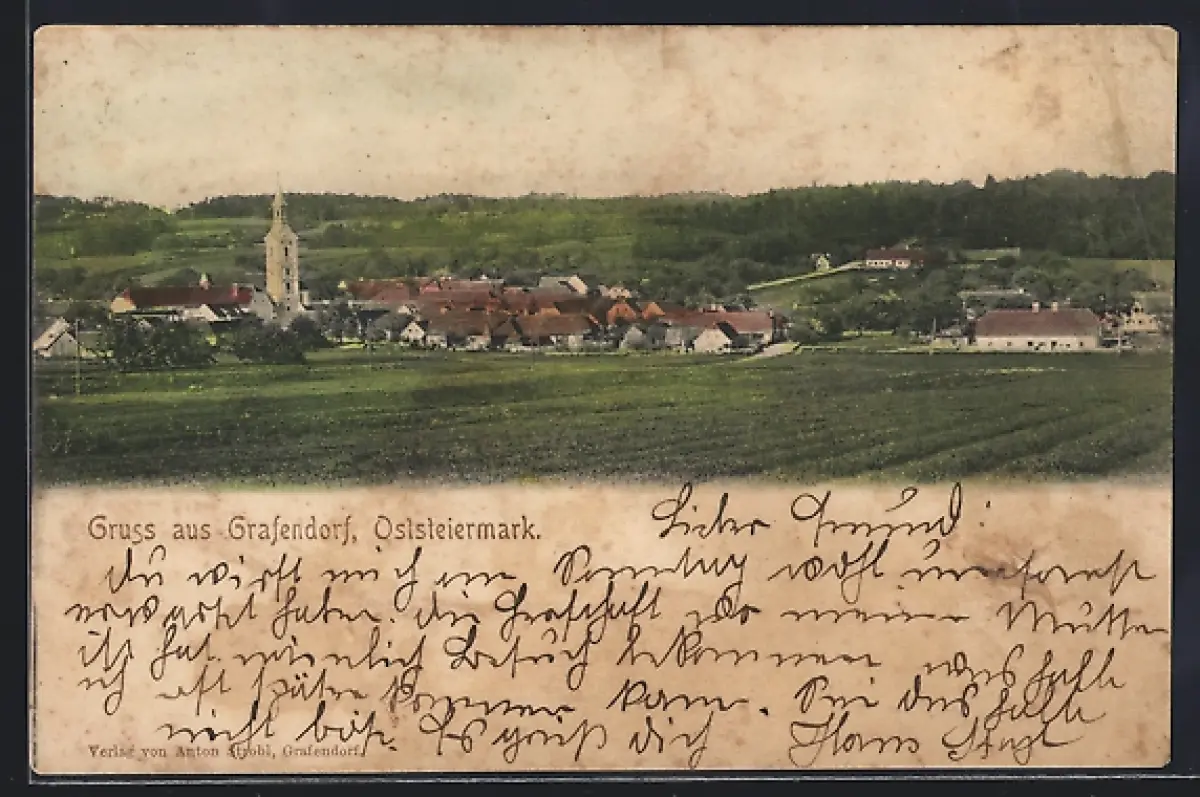 Gruss aus Grafendorf, Oststeiermark.
Lieber Freund!
Du wirst mich am Sonntag wohl umsonst
erwartet haben. die Herschaft wo meine Mutter
ist hat nämlich Besuch bekommen weshalb
ich erst später kommen kann. Sei deshalb
nicht böse. Es grüßt dich Hans
Verlag von Anton Strobl, Grafendorf.